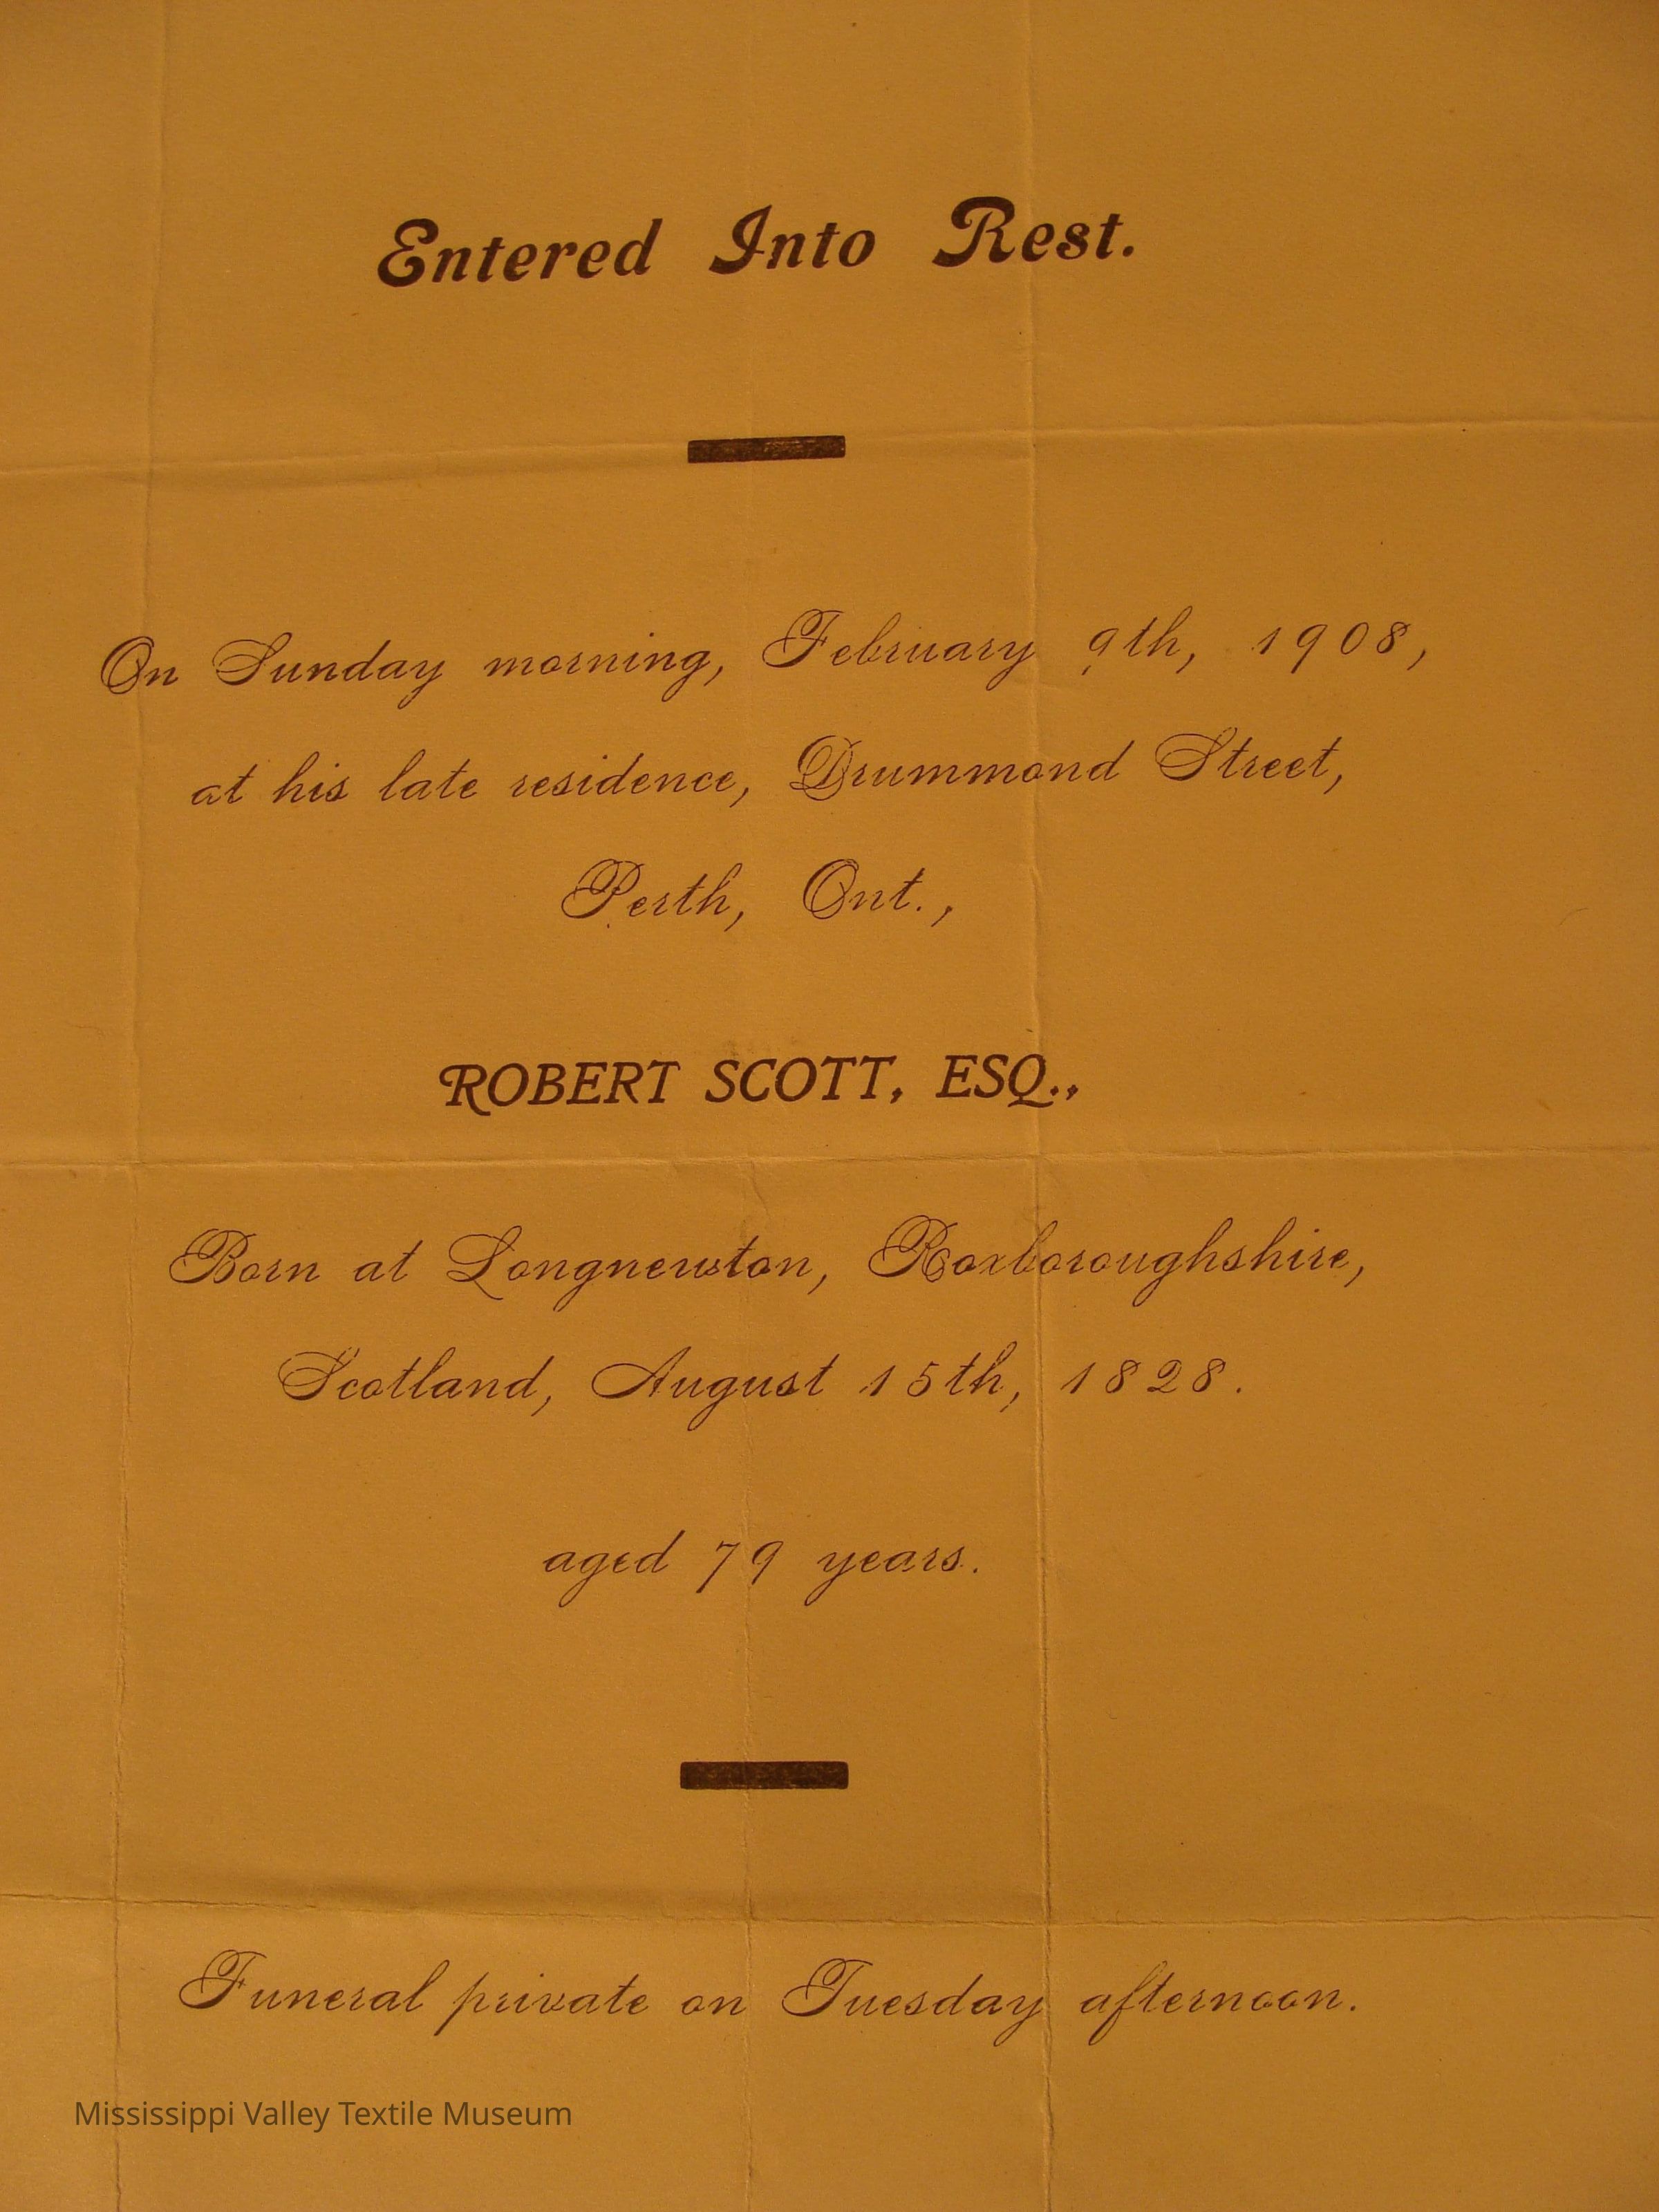 Entered Into Rest.
On Sunday morning, February 9th, 1908,
at his late residence, Drummond Street,
Perth, Ont.,
ROBERT SCOTT, ESQ.,
Born at Longnewton, Roxboroughshire,
Scotland, August 15th, 1828.
aged 79 years.
Funeral private on Tuesday afternoon.
Mississippi Valley Textile Museum